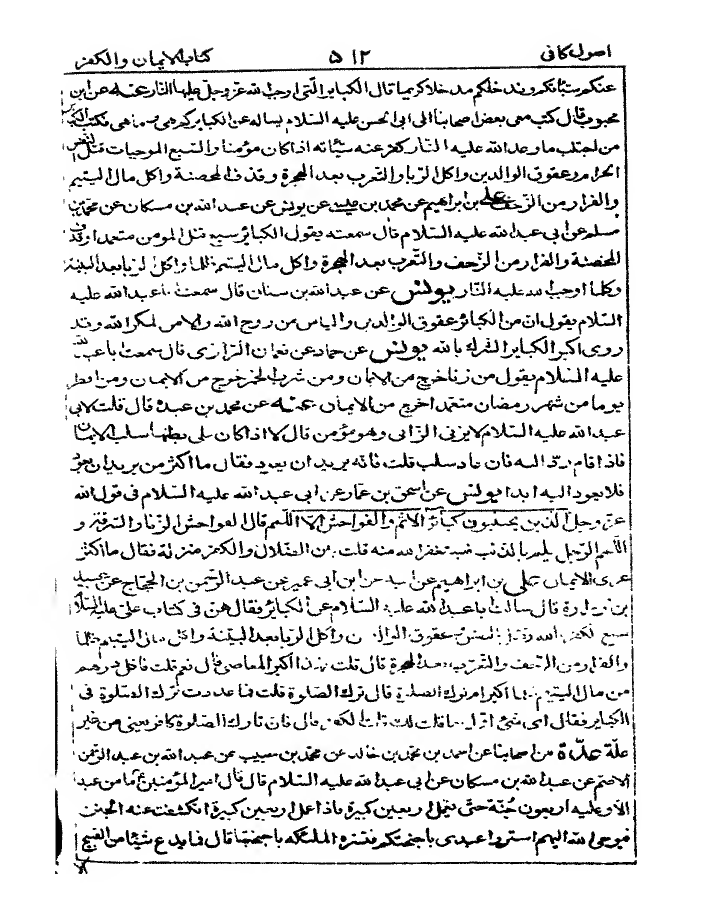 اصول كافى ٥١٢ كتاب الايمان والكفر
عنكم سيّئاتكم وندخلكم مدخلا كريما قال الكبائر الّتى اوجب الله عزّ وجلّ عليها النّار عنه عن ابن
محبوب قال كتب معى بعض اصحابنا الى ابى الحسن عليه السّلام يساله عن الكبائر كم هى وما هى فكتب الكبائر
من اجتنب ما وعد الله عليه النّار كفّر عنه سيّئاته اذا كان مؤمنا والسّبع الموجبات قتل النفس
الحرام وعقوق الوالدين واكل الرّبا والتعرّب بعد الهجرة وقذف المحصنة واكل مال اليتيم
والفرار من الزّحف على بن ابراهيم عن محمد بن عيسى عن يونس عن عبد الله بن مسكان عن محمد بن
مسلم عن ابى عبد الله عليه السّلام قال سمعته يقول الكبائر سبع قتل المومن متعمدا وقذف
المحصنة والفرار من الزّحف والتّعرّب بعد الهجرة واكل مال اليتيم ظلما واكل الرّبا بعد البيّنة
وكلما اوجب الله عليه النّار يونس عن عبد الله بن سنان قال سمعت ابا عبد الله عليه
السّلام يقول ان من الكبائر عقوق الوالدين والياس من روح الله والامن لمكر الله وقد
روى اكبر الكبائر الشّرك بالله يونس عن حماد عن نعمان الرّازى قال سمعت ابا عبد الله
عليه السّلام يقول من زنا خرج من الايمان ومن شرب الخمر خرج من الايمان ومن افطر
يوما من شهر رمضان متعمّدا خرج من الايمان عنه عن محمد بن عبدة قال قلت لابى
عبد الله عليه السّلام لا يزنى الزّانى وهو مؤمن قال لا اذا كان على بطنها سلب الايمان
فاذا قام ردّ اليه فان عاد سلب قلت فانّه يريد ان يعود فقال ما اكثر من يريد ان يعود
فلا يعود اليه ابدا يونس عن اسحق بن عمار عن ابى عبد الله عليه السّلام فى قول الله
عزّ وجلّ الّذين يجتنبون كبائر الاثم والفواحش الّا اللّمم قال الفواحش الزّنا والسّرقة و
اللّمم الرّجل يلمّ بالذّنب فيستغفر الله منه قلت بين الضّلال والكفر منزلة فقال ما اكثر
عرى الايمان على بن ابراهيم عن ابيه عن ابن ابى عمير عن عبد الرّحمن بن الحجّاج عن عبيد
بن زرارة قال سالت ابا عبد الله عليه السّلام عن الكبائر فقال هن فى كتاب علىّ عليه السّلام
سبع الكفر بالله وقتل النفس وعقوق الوالدين واكل الربا بعد البيّنة واكل مال اليتيم ظلما
والفرار من الزّحف والتّعرّب بعد الهجرة قال قلت فهذا اكبر المعاصى قال نعم قلت فاكل درهم
من مال اليتيم ظلما اكبر ام ترك الصلوة قال ترك الصّلوة قلت فما عددت ترك الصّلوة فى
الكبائر فقال اى شئ اوّل ما قلت لك قلت الكفر قال فان تارك الصّلوة كافر يعنى من غير
علّة عدّة من اصحابنا عن احمد بن محمد بن خالد عن محمد بن حبيب عن عبد الله بن عبد الرّحمن
الاصم عن عبد الله بن مسكان عن ابى عبد الله عليه السّلام قال قال امير المؤمنين ع ما من عبد
الّا وعليه اربعون جُنّة حتّى يعمل اربعين كبيرة فاذا عمل اربعين كبيرة انكشفت عنه الجنن
فيوحى الله اليهم استروا عبدى باجنحتكم فتستره الملئكة باجنحتها قال فما يدع شيئا من القبيح